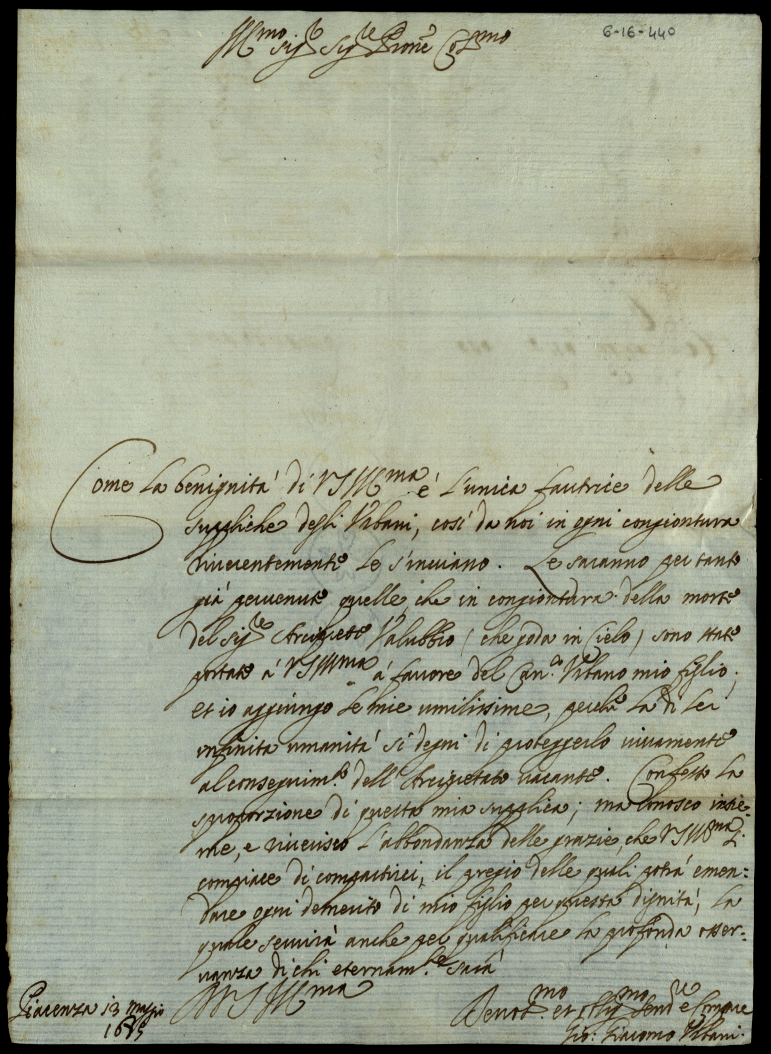 6-16-440
Ill.mo Sig.r Sig.r e P.rone Col.mo
Come la benignità di V S Ill.ma è l'unica fautrice delle
suppliche degli Urbani, così da noi in ogni congiontura
riverentemente le s'inviano. Le saranno per tanto
già pervenute quelle che in congiontura della morte
del Sig.r Arciprete Valubbio (che goda in Cielo) sono state
portate à V S Ill.ma à favore del Can.co Urbano mio figlio;
et io aggiungo le mie umilissime, perchè la di lei
infinita umanità si degni di proteggerlo vivamente
al conseguim.to dell'Arcipretato vacante. Confesso la
sproporzione di questa mia supplica; ma conosco insie-
me, e riverisco l'abbondanza delle grazie che V S Ill.ma si
compiace di compartirci, il pregio delle quali potrà emen=
dare ogni demerito di mio figlio per questa dignità, la
quale servirà anche per qualificare la profonda osser=
vanza di chi eternam.te sarà
D V S Ill.ma
Piacenza 13 Maggio
Devot.mo et Oblig.mo Serv.re e Compare
Gio: Giacomo Urbani.